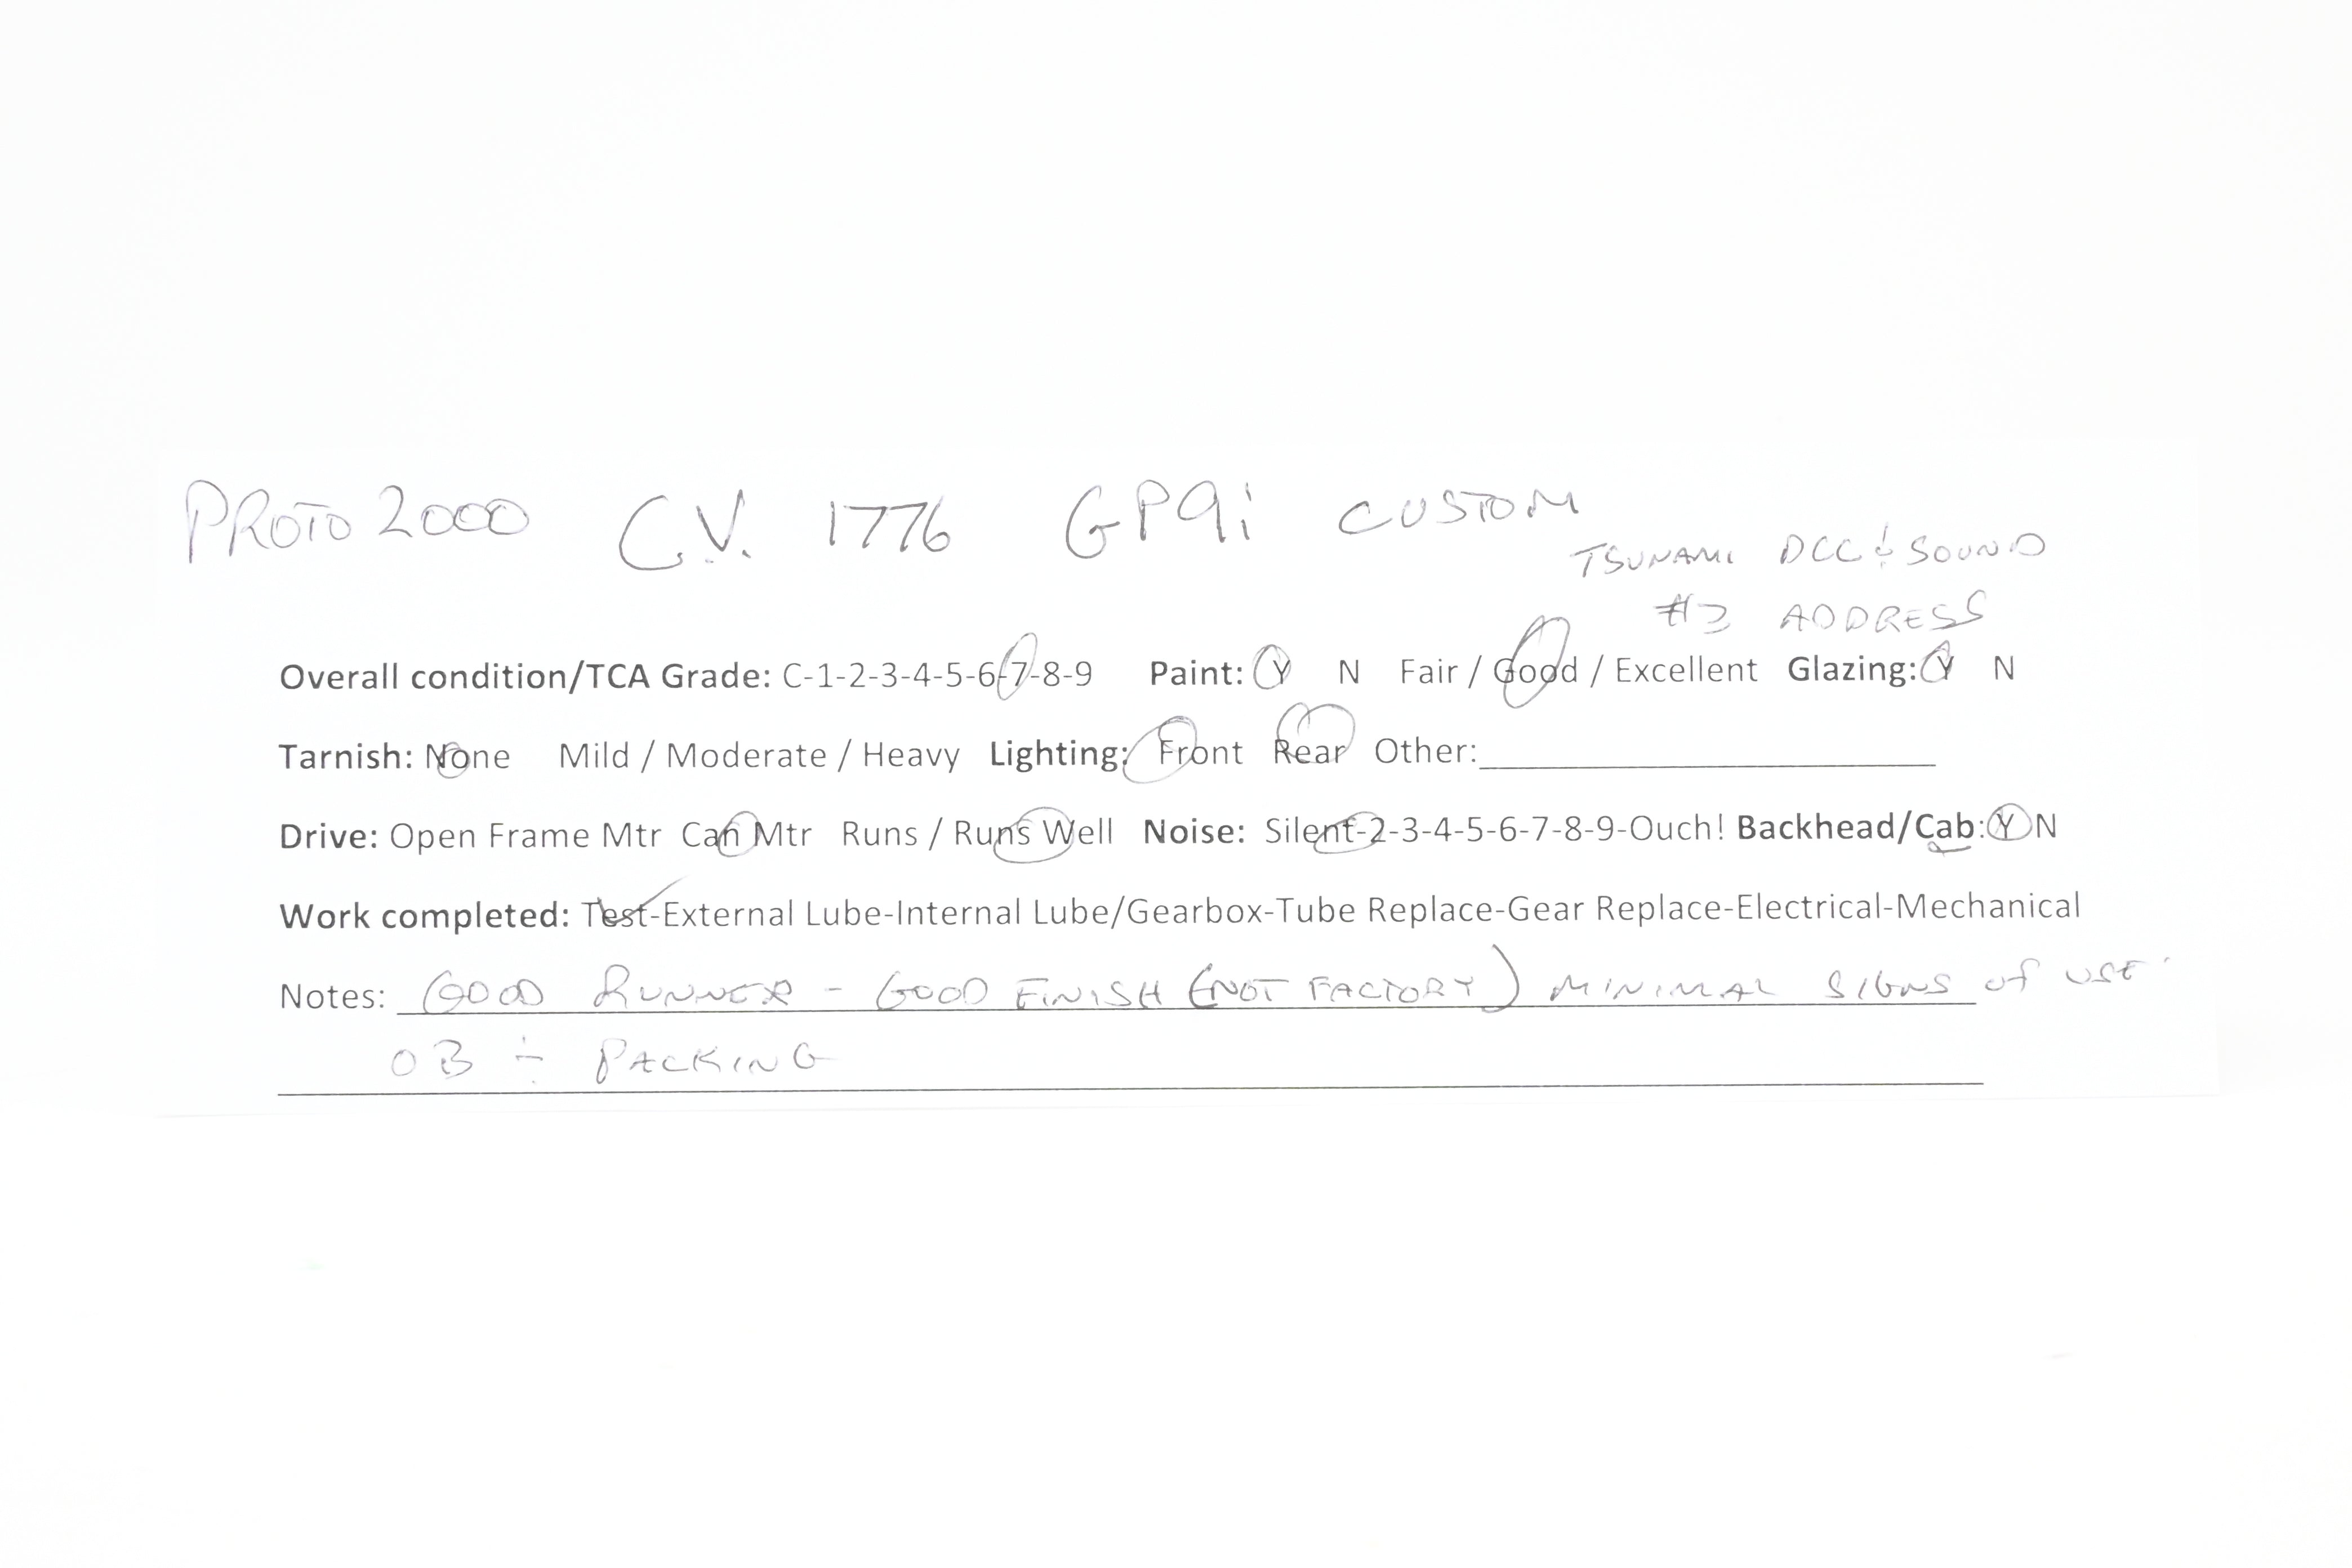 PROTO 2000 C.V. 1776 GP9i CUSTOM
TSUNAMI DCC & SOUND
#3 ADDRESS
Overall condition/TCA Grade: C-1-2-3-4-5-6-7-8-9 Paint: Y N Fair / Good / Excellent Glazing: Y N
Tarnish: None Mild / Moderate / Heavy Lighting: Front Rear Other:
Drive: Open Frame Mtr Can Mtr Runs / Runs Well Noise: Silent-2-3-4-5-6-7-8-9-Ouch! Backhead/Cab: Y N
Work completed: Test-External Lube-Internal Lube/Gearbox-Tube Replace-Gear Replace-Electrical-Mechanical
Notes: GOOD RUNNER - GOOD FINISH (NOT FACTORY) MINIMAL SIGNS OF USE.
OB & PACKING